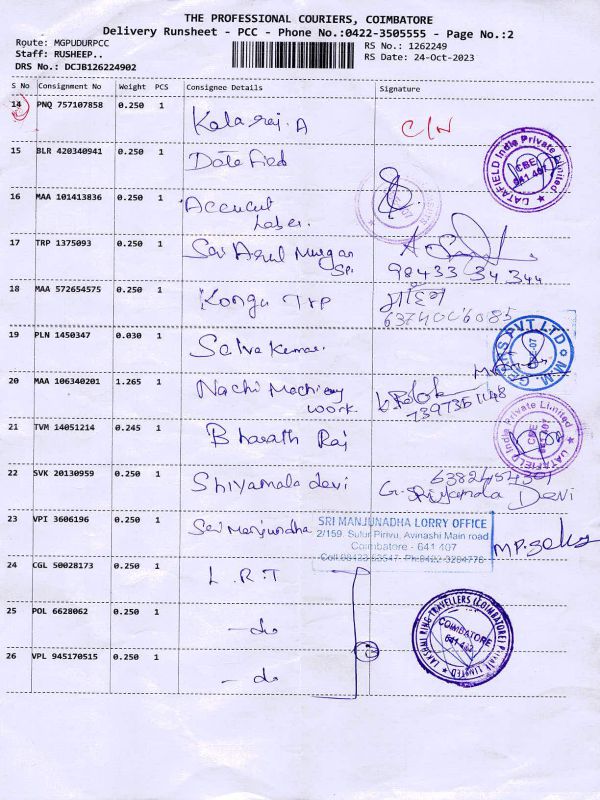 THE PROFESSIONAL COURIERS, COIMBATORE
Delivery Runsheet - PCC - Phone No.:0422-3505555 - Page No.:2
Route: MGPUDURPCC
RS No.: 1262249
Staff: RUSHEEP..
RS Date: 24-Oct-2023
DRS No.: DCJB126224902
S No Consignment No Weight PCS Consignee Details Signature
14 PNQ 757107858 0.250 1 Kalaraj. A C/N
15 BLR 420340941 0.250 1 Data Field
LATAFIELD India Private Limited CBE 641 407
16 MAA 101413836 0.250 1 Accucut
Label.
17 TRP 1375093 0.250 1 Sai Arul Murgan
Spi. 98433 34 344
18 MAA 572654575 0.250 1 Kongu Trp
6374006085
19 PLN 1450347 0.030 1 Selva Kumar.
M.M. GEARS PVT LTD
20 MAA 106340201 1.265 1 Nachi Machinery
work. 7397351148
21 TVM 14051214 0.245 1 Bharath Raj
LATAFIELD India Private Limited CBE 641 407
22 SVK 20130959 0.250 1 Shiyamala devi
G. Shiyamala Devi
23 VPI 3606196 0.250 1 Sri Manjundha
SRI MANJUNADHA LORRY OFFICE
2/159, Sulur Pirivu, Avinashi Main road
Coimbatore - 641 407
M.P. Seks
24 CGL 50028173 0.250 1 L.R.T
25 POL 6628062 0.250 1 - do
LAKSHMI RING TRAVELLERS (COIMBATORE) Private Limited COIMBATORE 641 402
26 VPL 945170515 0.250 1 - do